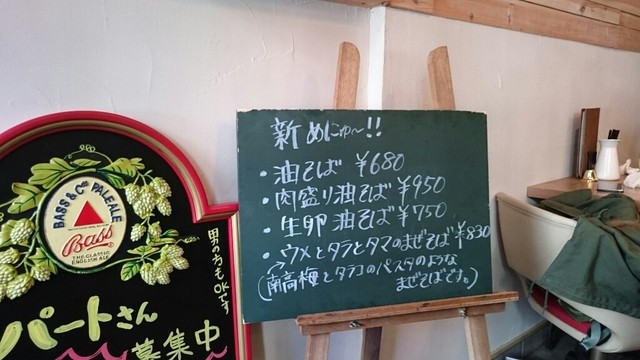 BASS & Co's PALE ALE
Bass
THE CLASSIC
ENGLISH ALE
男の方もOKです
パートさん
募集中
新めにゅ〜!!
・油そば ¥680
・肉盛り油そば ¥950
・生卵油そば ¥750
・ウメとタラとタマのまぜそば ¥830
(南高梅とタラコのパスタのような
まぜそばです。)